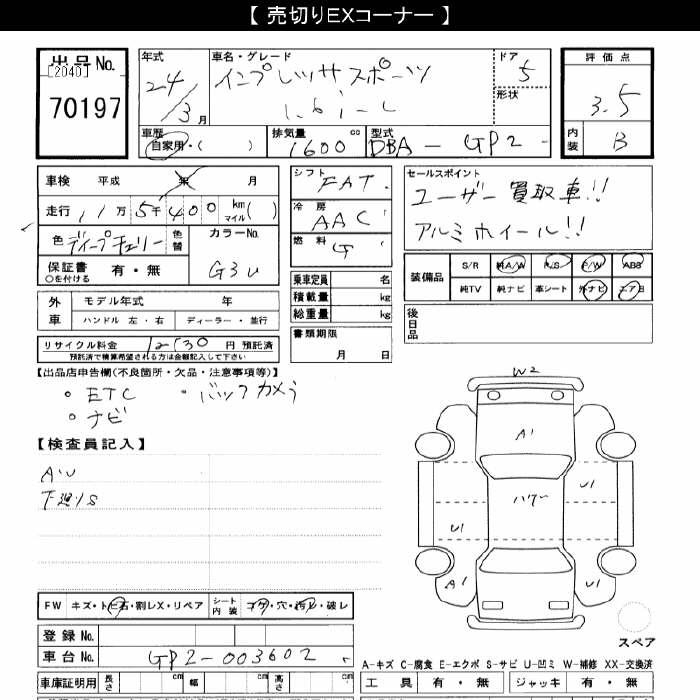 【 売切りEXコーナー 】
出品No. [2040] 70197
年式 24/3月
車名・グレード インプレッサスポーツ 1.6i-L
ドア 5
形状
評価点 3.5
内装 B
車歴 自家用・( )
排気量 1600 cc
型式 DBA-GP2
車検 平成 年 月
走行 11万5千400 km マイル( )
色 ディープチェリー 色替
カラーNo. G3U
保証書 有・無
○を付ける
シフト FAT
冷房 AAC
燃料 G
セールスポイント
ユーザー買取車!!
アルミホイール!!
装備品 S/R 純A/W P/S P/W ABS
純TV 純ナビ 革シート 外ナビ エアB
乗車定員 名
積載量 kg
総重量 kg
書類期限 月 日
後日品
外車 モデル年式 年
ハンドル 左・右 ディーラー・並行
リサイクル料金 12530 円 預託済
預託済で精算希望される方は金額記入して下さい
【出品店申告欄(不良箇所・欠品・注意事項等)】
・ETC ・バックカメラ
・ナビ
【検査員記入】
AU
下廻りS
W2
A1
U1
ハワー
U1
A1
U1
スペア
FW キズ・トビ石・割レX・リペア シート内装 コゲ・穴・汚レ・破レ
登録No.
車台No. GP2-003602
A-キズ C-腐食 E-エクボ S-サビ U-凹ミ W-補修 XX-交換済
車庫証明用 長さ cm 幅 cm 高さ cm
工具 有・無 ジャッキ 有・無